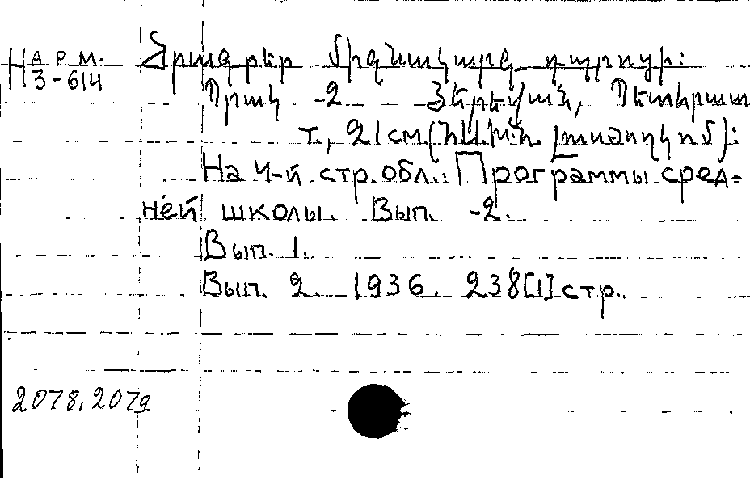 Н А Р М.
3-614
Ծրագրեր միջնակարգ դպրոցի:
Պրակ -2 Յերեվան, Պետհրատ
т., 21 см. (հԱԽՍՀ լուսժողկոմ):
На 4-й стр. обл.: Программы сред=
ней школы. Вып. -2.
Вып. 1.
Вып. 2. 1936. 238 [1] стр.
2078. 2079